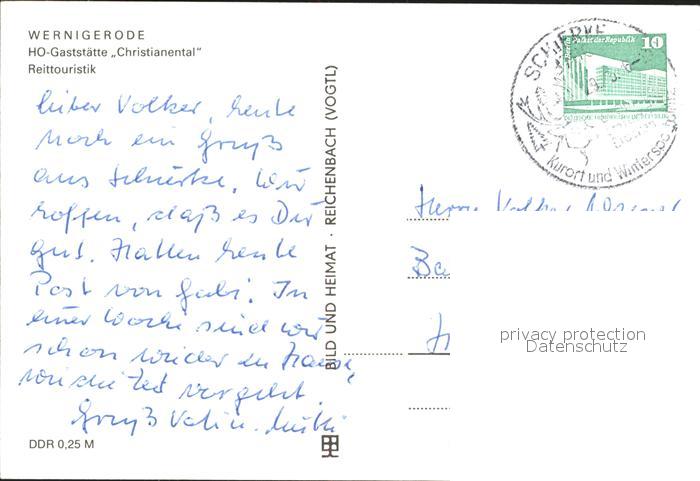 WERNIGERODE
HO-Gaststätte „Christianental"
Reittouristik
Lieber Volker, heute
noch ein Gruß
aus Schierke. Wir
hoffen, daß es Dir
gut. Hatten heute
Post von Gabi. In
einer Woche sind wir
schon wieder zu Hause,
wie die Zeit vergeht.
Gruß Vati u. Mutti
DDR 0,25 M
BILD UND HEIMAT · REICHENBACH (VOGTL)
SCHIERKE
Kurort und Wintersport
10
Herrn Volker
Ba
privacy protection
Datenschutz